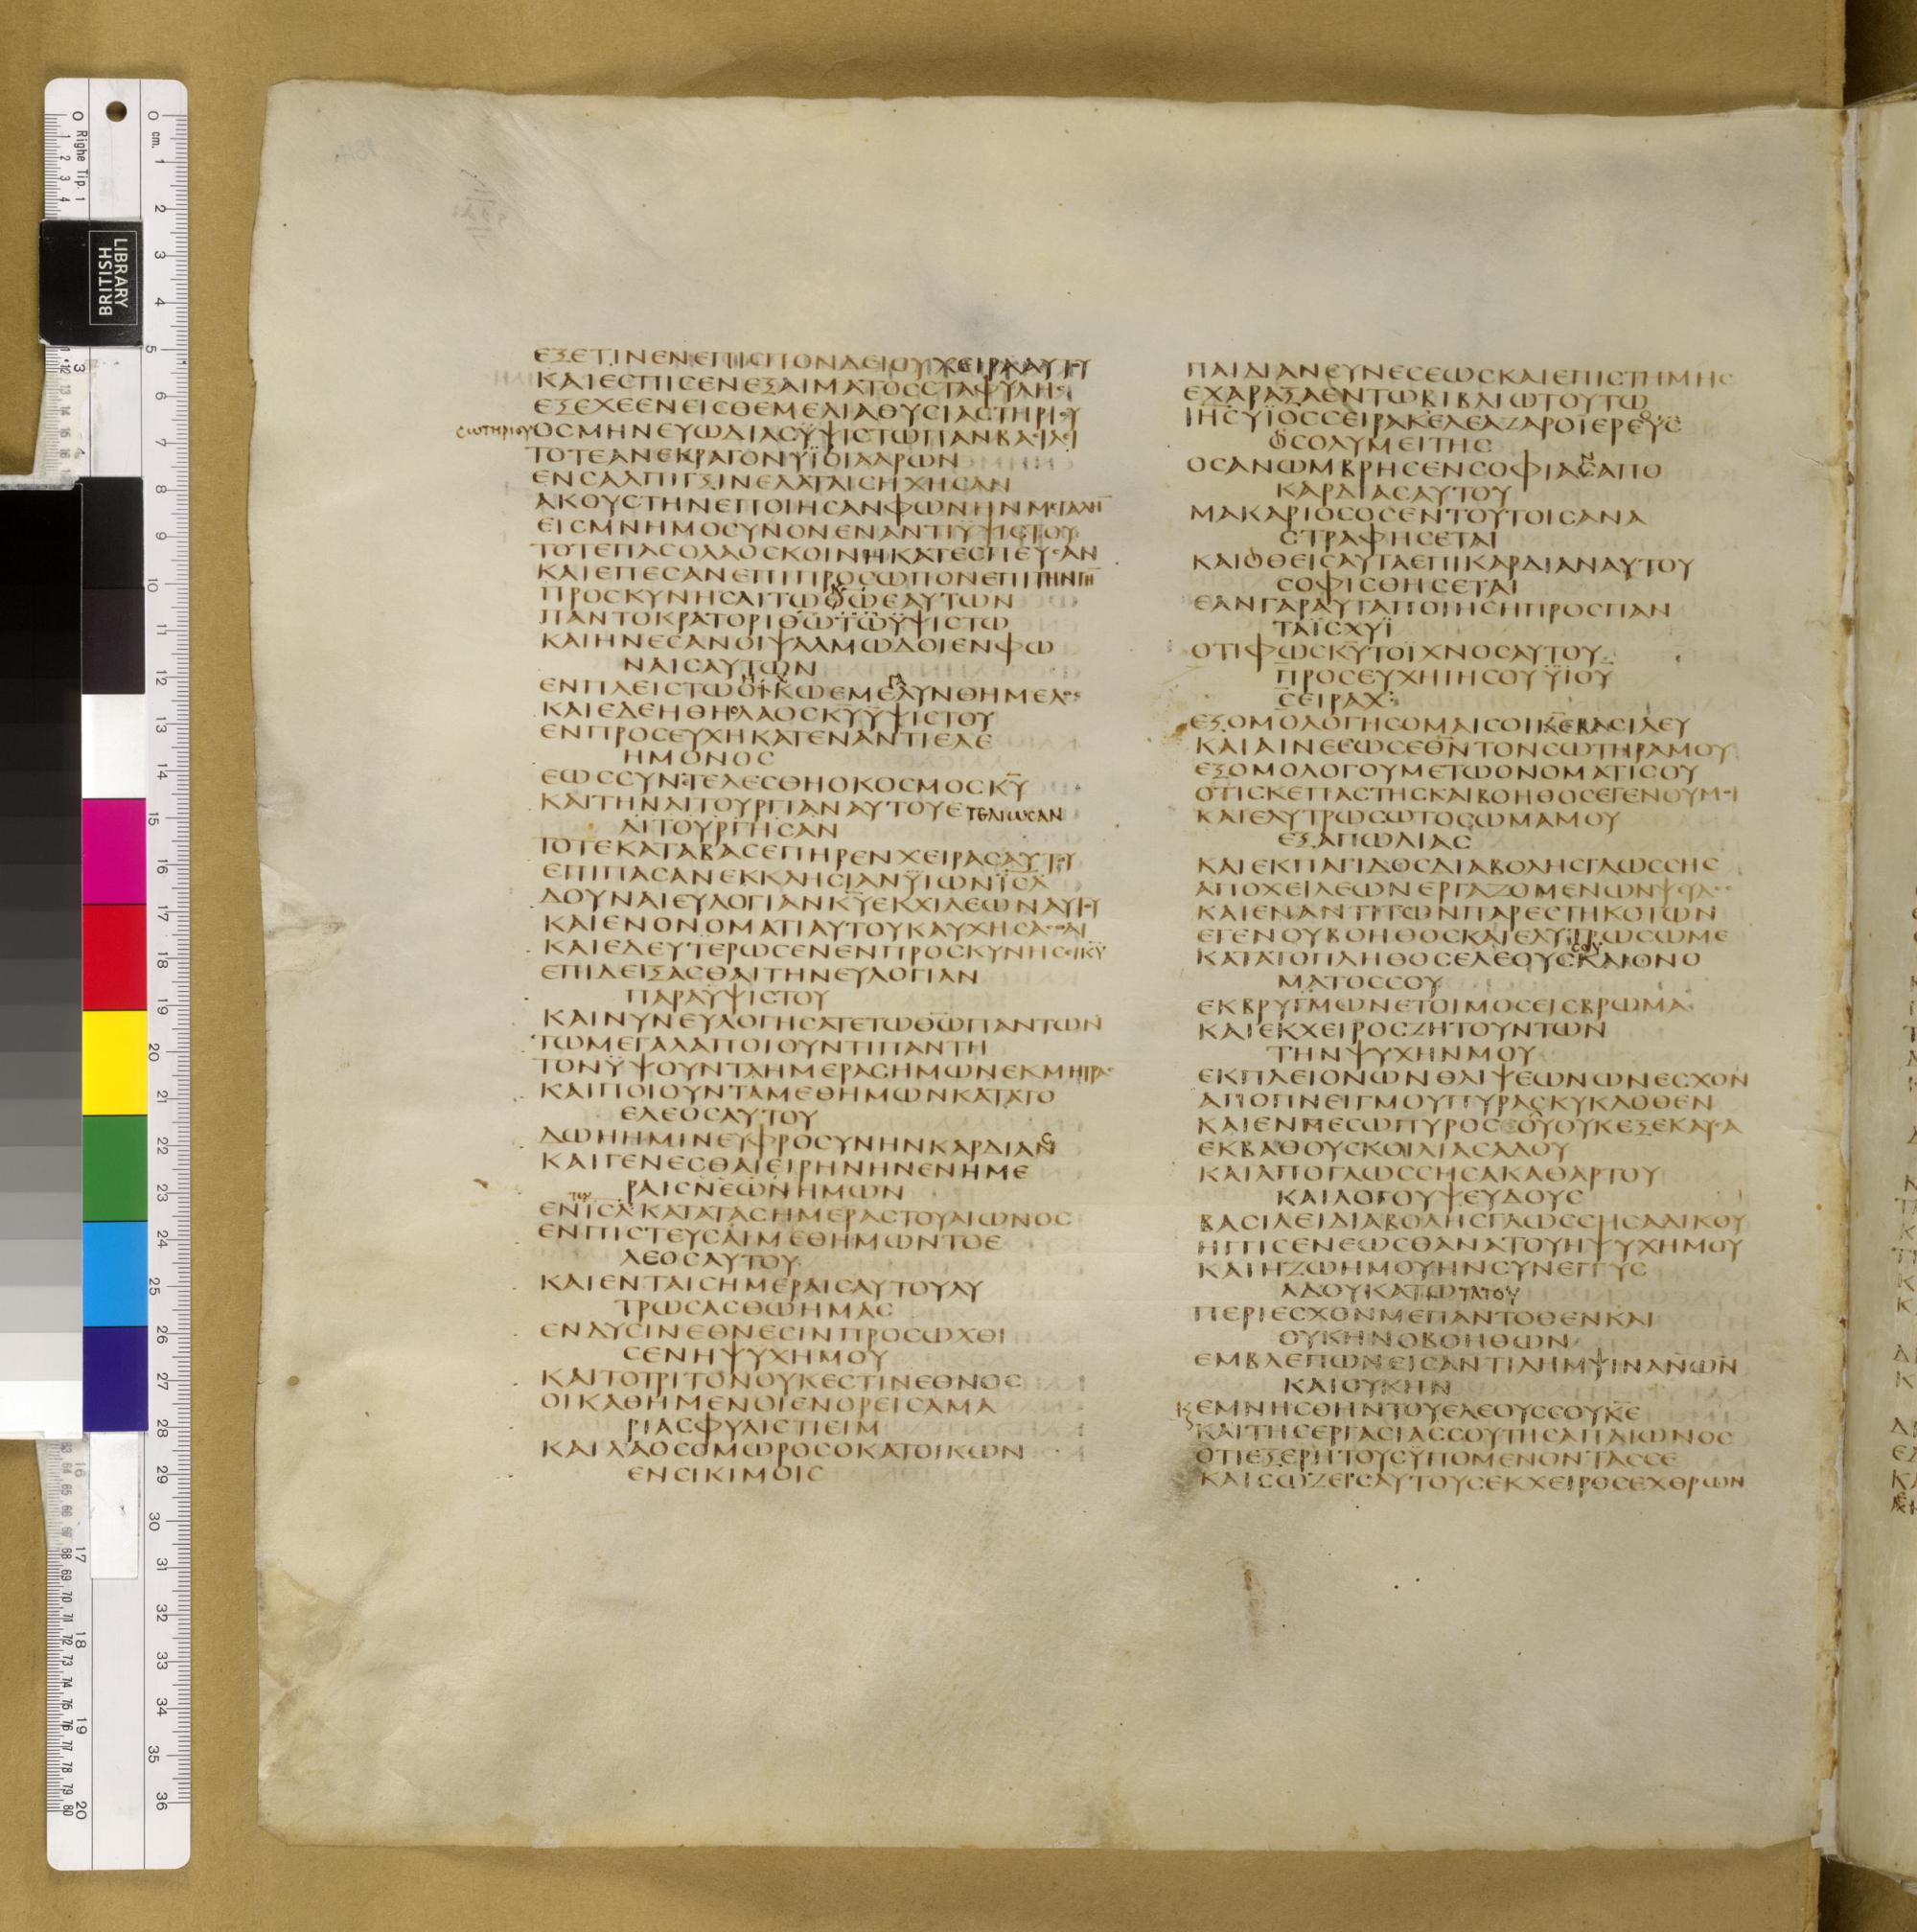 ΕΞΕΤΙΝΕΝΕΠΙСΠΟΝΔΕΙΟΥΧΕΙΡΑΑΥΤΟΥ
ΚΑΙΕСΠΙСΕΝΕΞΑΙΜΑΤΟССΤΑΦΥΛΗС
ΕΞΕΧΕΕΝΕΙСΘΕΜΕΛΙΑΘΥСΙΑСΤΗΡΙΟΥ
СΩΤΗΡΙΟΥ
ΟСΜΗΝΕΥΩΔΙΑСΥΨΙСΤΩΠΑΝΒΑСΙΛΙ
ΤΟΤΕΑΝΕΚΡΑΓΟΝΥΪΟΙΑΑΡΩΝ
ΕΝСΑΛΠΙΓΞΙΝΕΛΑΤΑΙСΗΧΗСΑΝ
ΑΚΟΥСΤΗΝΕΠΟΙΗСΑΝΦΩΝΗΝΜΕΓΑΛΗ̅
ΕΙСΜΝΗΜΟСΥΝΟΝΕΝΑΝΤΙΫΨΙСΤΟΥ
ΤΟΤΕΠΑСΟΛΑΟСΚΟΙΝΗΚΑΤΕСΠΕΥСΑΝ
ΚΑΙΕΠΕСΑΝΕΠΙΠΡΟСΩΠΟΝΕΠΙΤΗΝΓΗ̅
ΠΡΟСΚΥΝΗСΑΙΤΩΘ̅Ω̅ΕΑΥΤΩΝ
ΠΑΝΤΟΚΡΑΤΟΡΙΘ̅Ω̅ΤΩΫΨΙСΤΩ
ΚΑΙΗΝΕСΑΝΟΙΨΑΛΜΩΔΟΙΕΝΦΩ
ΝΑΙСΑΥΤΩΝ
ΕΝΠΛΕΙСΤΩΟΙΚΩΕΜΕΛΥΝΘΗΜΕΛΟС
ΚΑΙΕΔΕΗΘΗΟΛΑΟСΚ̅Υ̅ΫΨΙСΤΟΥ
ΕΝΠΡΟСΕΥΧΗΚΑΤΕΝΑΝΤΙΕΛΕ
ΗΜΟΝΟС
ΕΩССΥΝΤΕΛΕСΘΗΟΚΟСΜΟСΚ̅Υ̅
ΚΑΙΤΗΝΛΙΤΟΥΡΓΙΑΝΑΥΤΟΥΕΤΕΛΙΩСΑΝ
ΛΙΤΟΥΡΓΗСΑΝ
ΤΟΤΕΚΑΤΑΒΑСΕΠΗΡΕΝΧΕΙΡΑСΑΥΤΟΥ
ΕΠΙΠΑСΑΝΕΚΚΛΗСΙΑΝΫΙΩΝΪ̅С̅Λ̅
ΔΟΥΝΑΙΕΥΛΟΓΙΑΝΚ̅Υ̅ΕΚΧΙΛΕΩΝΑΥΤΟΥ
ΚΑΙΕΝΟΝΟΜΑΤΙΑΥΤΟΥΚΑΥΧΗСΑСΘΑΙ
ΚΑΙΕΔΕΥΤΕΡΩСΕΝΕΝΠΡΟСΚΥΝΗСΙΚ̅Υ̅
ΕΠΙΔΕΙΞΑСΘΑΙΤΗΝΕΥΛΟΓΙΑΝ
ΠΑΡΑΫΨΙСΤΟΥ
ΚΑΙΝΥΝΕΥΛΟΓΗСΑΤΕΤΩΘ̅Ω̅ΠΑΝΤΩΝ
ΤΩΜΕΓΑΛΑΠΟΙΟΥΝΤΙΠΑΝΤΗ
ΤΟΝΫΨΟΥΝΤΑΗΜΕΡΑСΗΜΩΝΕΚΜΗΤΡΑС
ΚΑΙΠΟΙΟΥΝΤΑΜΕΘΗΜΩΝΚΑΤΑΤΟ
ΕΛΕΟСΑΥΤΟΥ
ΔΩΗΗΜΙΝΕΥΦΡΟСΥΝΗΝΚΑΡΔΙΑС
ΚΑΙΓΕΝΕСΘΑΙΕΙΡΗΝΗΝΕΝΗΜΕ
ΡΑΙСΝΕΩΝΗΜΩΝ
ΤΟΥ
ΕΝΪ̅С̅Λ̅ΚΑΤΑΤΑСΗΜΕΡΑСΤΟΥΑΙΩΝΟС
ΕΝΠΙСΤΕΥСΑΙΜΕΘΗΜΩΝΤΟΕ
ΛΕΟСΑΥΤΟΥ
ΚΑΙΕΝΤΑΙСΗΜΕΡΑΙСΑΥΤΟΥΛΥ
ΤΡΩСΑСΘΩΗΜΑС
ΕΝΔΥСΙΝΕΘΝΕСΙΝΠΡΟСΩΧΘΙ
СΕΝΗΨΥΧΗΜΟΥ
ΚΑΙΤΟΤΡΙΤΟΝΟΥΚΕСΤΙΝΕΘΝΟС
ΟΙΚΑΘΗΜΕΝΟΙΕΝΟΡΕΙСΑΜΑ
ΡΙΑСΦΥΛΙСΤΙΕΙΜ
ΚΑΙΛΑΟСΟΜΩΡΟСΟΚΑΤΟΙΚΩΝ
ΕΝСΙΚΙΜΟΙС
ΠΑΙΔΙΑΝСΥΝΕСΕΩСΚΑΙΕΠΙСΤΗΜΗС
ΕΧΑΡΑΞΑΕΝΤΩΒΙΒΛΙΩΤΟΥΤΩ
ΙΗСΥΪΟССΕΙΡΑΚΕΛΕΑΖΑΡΟΙΕΡΕΥС
ΟСΟΛΥΜΕΙΤΗС
ΟСΑΝΩΜΒΡΗСΕΝСΟΦΙΑСΑΠΟ
ΚΑΡΔΙΑСΑΥΤΟΥ
ΜΑΚΑΡΙΟСΟСΕΝΤΟΥΤΟΙСΑΝΑ
СΤΡΑΦΗСΕΤΑΙ
ΚΑΙΟΘΕΙСΑΥΤΑΕΠΙΚΑΡΔΙΑΝΑΥΤΟΥ
СΟΦΙСΘΗСΕΤΑΙ
ΕΑΝΓΑΡΑΥΤΑΠΟΙΗСΗΠΡΟСΠΑΝ
ΤΑΪСΧΥΪ
ΟΤΙΦΩСΚ̅Υ̅ΤΟΪΧΝΟСΑΥΤΟΥ
ΠΡΟСΕΥΧΗΙΗСΟΥΫΙΟΥ
СΕΙΡΑΧ:
ΕΞΟΜΟΛΟΓΗСΟΜΑΙСΟΙΚ̅Ε̅ΒΑСΙΛΕΥ
ΚΑΙΑΙΝΕСΩСΕΘ̅Ν̅ΤΟΝСΩΤΗΡΑΜΟΥ
ΕΞΟΜΟΛΟΓΟΥΜΕΤΩΟΝΟΜΑΤΙСΟΥ
ΟΤΙСΚΕΠΑСΤΗСΚΑΙΒΟΗΘΟСΕΓΕΝΟΥΜΟΙ
ΚΑΙΕΛΥΤΡΩСΩΤΟСΩΜΑΜΟΥ
ΕΞΑΠΩΛΙΑС
ΚΑΙΕΚΠΑΓΙΔΟСΔΙΑΒΟΛΗСΓΛΩССΗС
ΑΠΟΧΕΙΛΕΩΝΕΡΓΑΖΟΜΕΝΩΝΨΕΥΔΟС
ΚΑΙΕΝΑΝΤΙΤΩΝΠΑΡΕСΤΗΚΟΤΩΝ
ΕΓΕΝΟΥΒΟΗΘΟСΚΑΙΕΛΥΤΡΩСΩΜΕ
СΟΥ
ΚΑΤΑΤΟΠΛΗΘΟСΕΛΕΟΥСΚΑΙΟΝΟ
ΜΑΤΟССΟΥ
ΕΚΒΡΥΓΜΩΝΕΤΟΙΜΟСΕΙСΒΡΩΜΑ
ΚΑΙΕΚΧΕΙΡΟСΖΗΤΟΥΝΤΩΝ
ΤΗΝΨΥΧΗΝΜΟΥ
ΕΚΠΛΕΙΟΝΩΝΘΛΙΨΕΩΝΩΝΕСΧΟΝ
ΑΠΟΠΝΕΙΓΜΟΥΠΥΡΑСΚΥΚΛΟΘΕΝ
ΚΑΙΕΝΜΕСΩΠΥΡΟСΟΥΟΥΚΕΞΕΚΑΥСΑ
ΕΚΒΑΘΟΥСΚΟΙΛΙΑСΑΔΟΥ
ΚΑΙΑΠΟΓΛΩССΗСΑΚΑΘΑΡΤΟΥ
ΚΑΙΛΟΓΟΥΨΕΥΔΟΥС
ΒΑСΙΛΕΙΔΙΑΒΟΛΗСΓΛΩССΗСΑΔΙΚΟΥ
ΗΓΓΙСΕΝΕΩСΘΑΝΑΤΟΥΗΨΥΧΗΜΟΥ
ΚΑΙΗΖΩΗΜΟΥΗΝСΥΝΕΓΓΥС
ΑΔΟΥΚΑΤΩΤΑΤΟΥ
ΠΕΡΙΕСΧΟΝΜΕΠΑΝΤΟΘΕΝΚΑΙ
ΟΥΚΗΝΟΒΟΗΘΩΝ
ΕΜΒΛΕΠΩΝΕΙСΑΝΤΙΛΗΜΨΙΝΑ̅Ν̅Ω̅Ν̅
ΚΑΙΟΥΚΗΝ
ΚϚΕΜΝΗСΘΗΝΤΟΥΕΛΕΟΥССΟΥΚ̅Ε̅
ΚΑΙΤΗСΕΡΓΑСΙΑССΟΥΤΗСΑΠΑΙΩΝΟС
ΟΤΙΕΞΕΡΗΤΟΥСΫΠΟΜΕΝΟΝΤΑССΕ
ΚΑΙСΩΖΕΙСΑΥΤΟΥСΕΚΧΕΙΡΟСΕΧΘΡΩΝ
BRITISH
LIBRARY
Righe Tip. 1
cm.